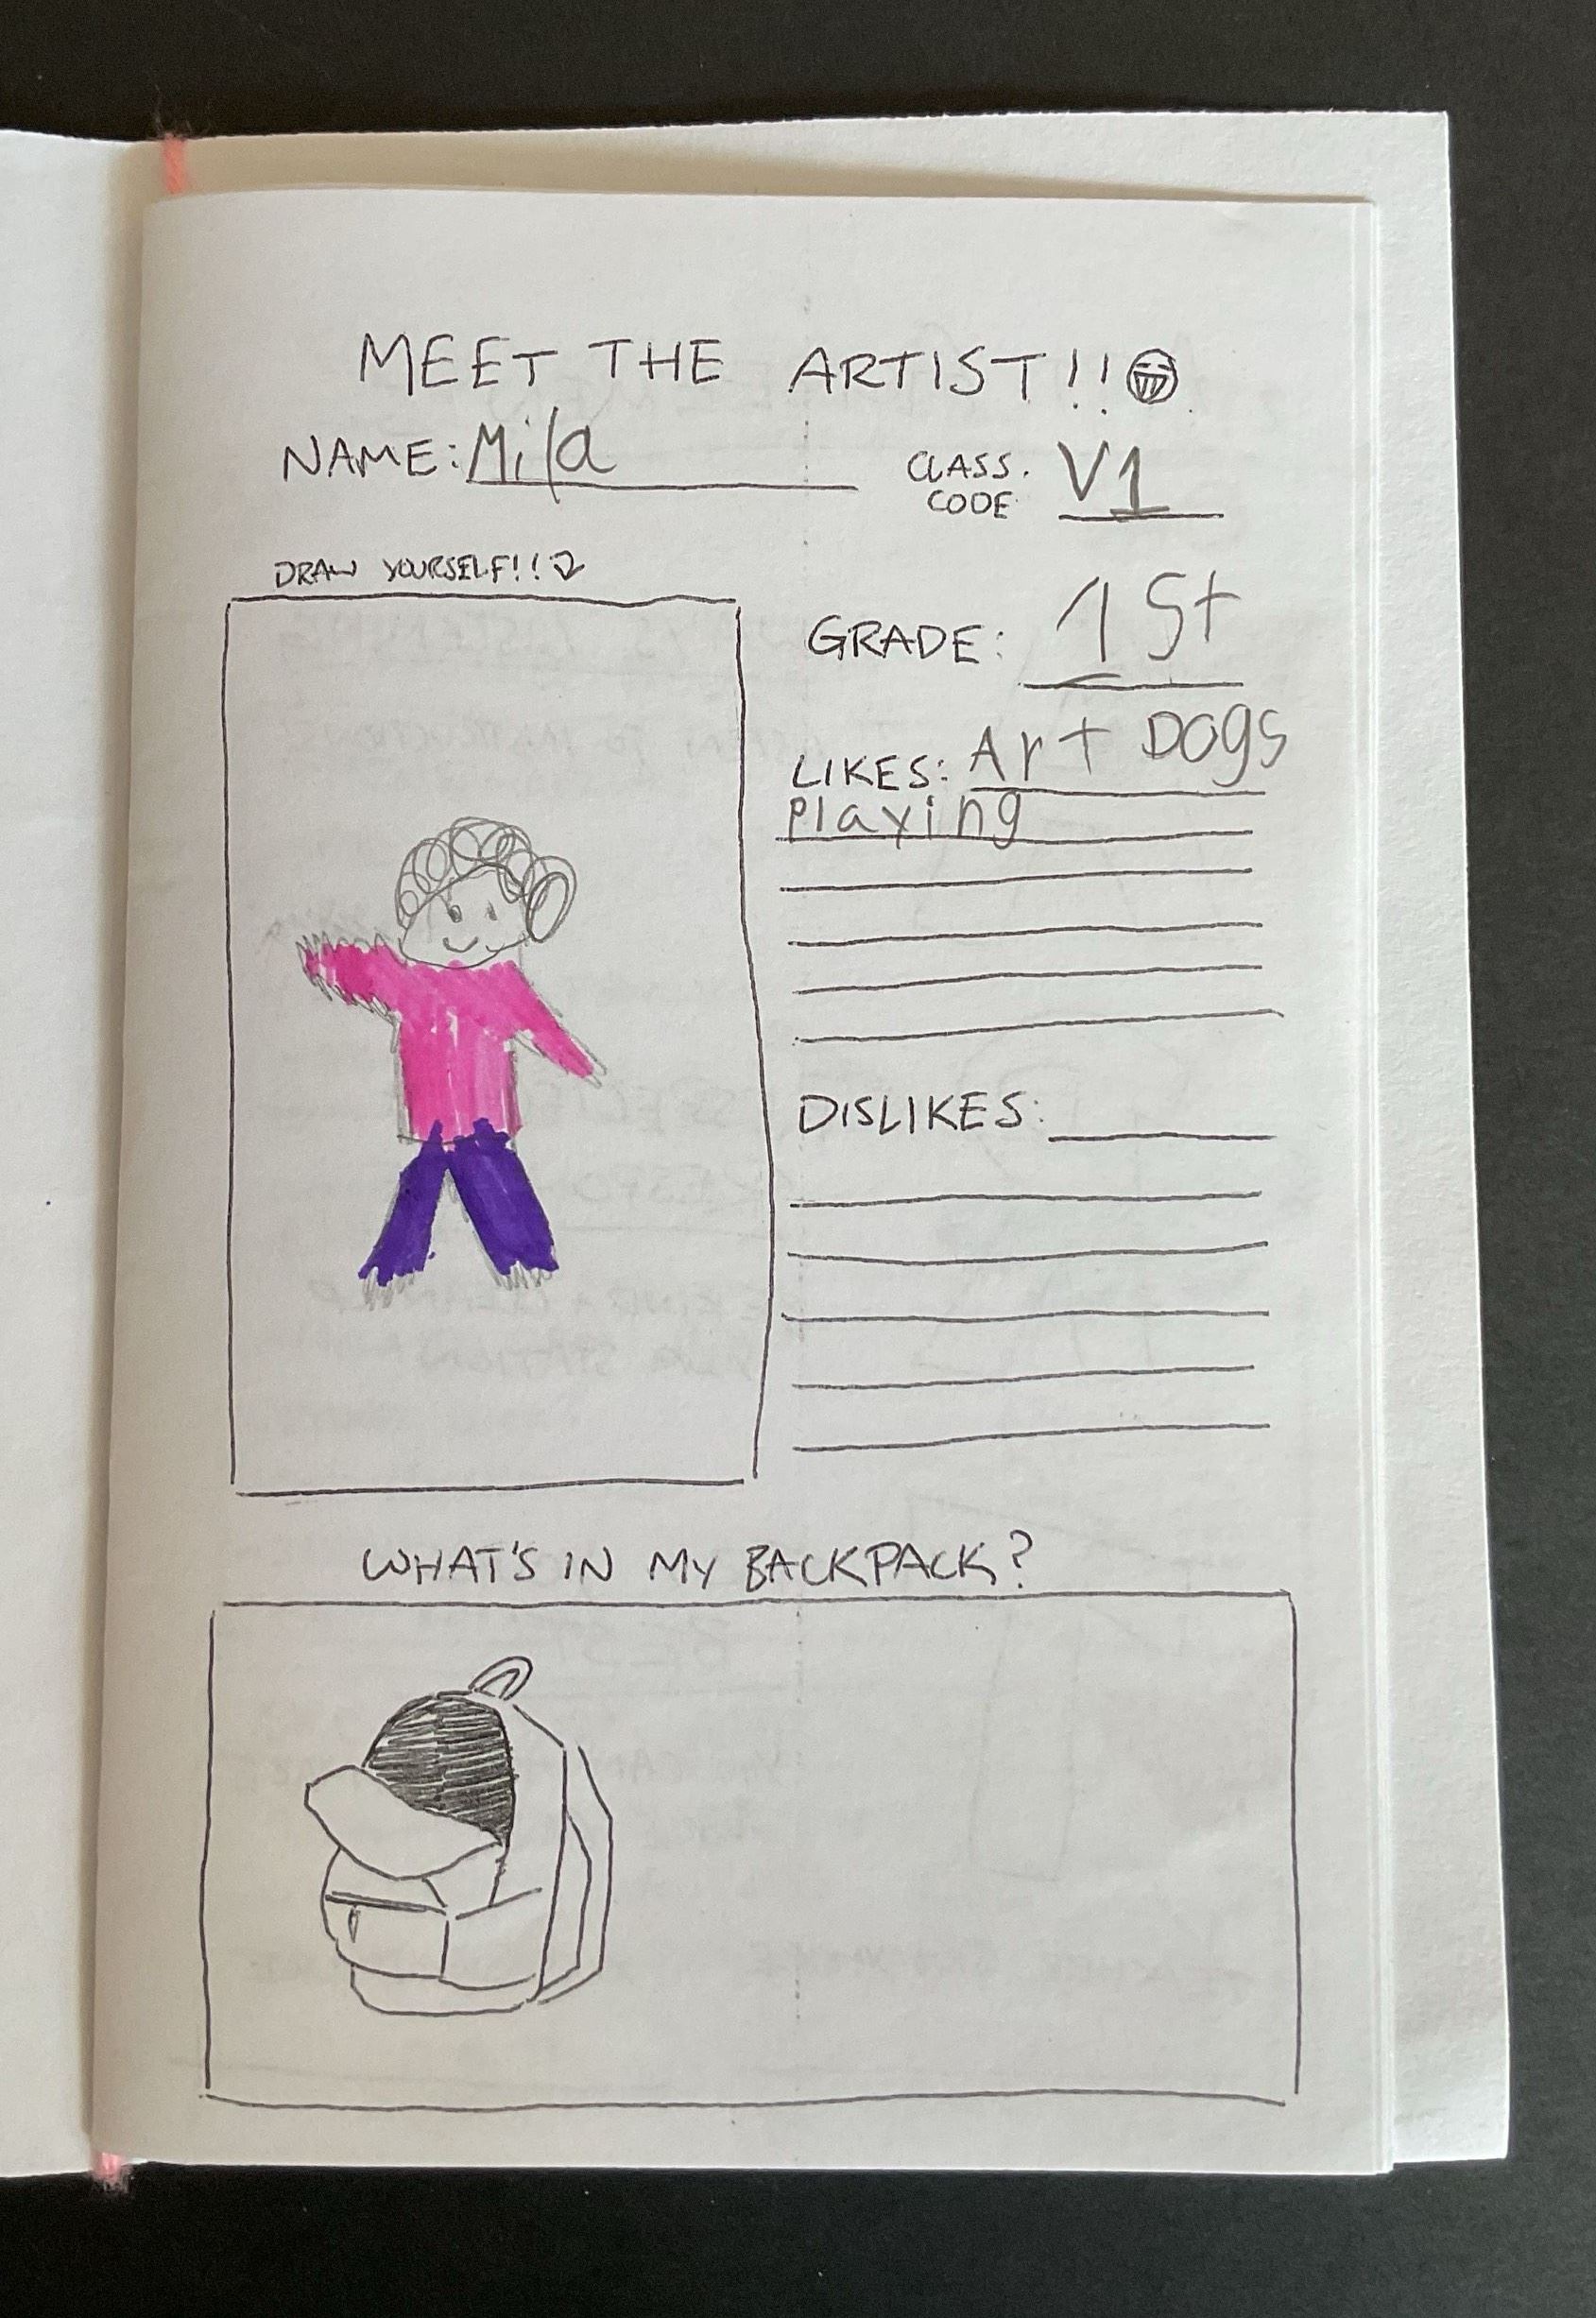 MEET THE ARTIST!!
NAME: Mila
CLASS. CODE V1
DRAW YOURSELF!!
GRADE: 1St
LIKES: Art DOgs
playing
DISLIKES:
WHAT'S IN MY BACKPACK?